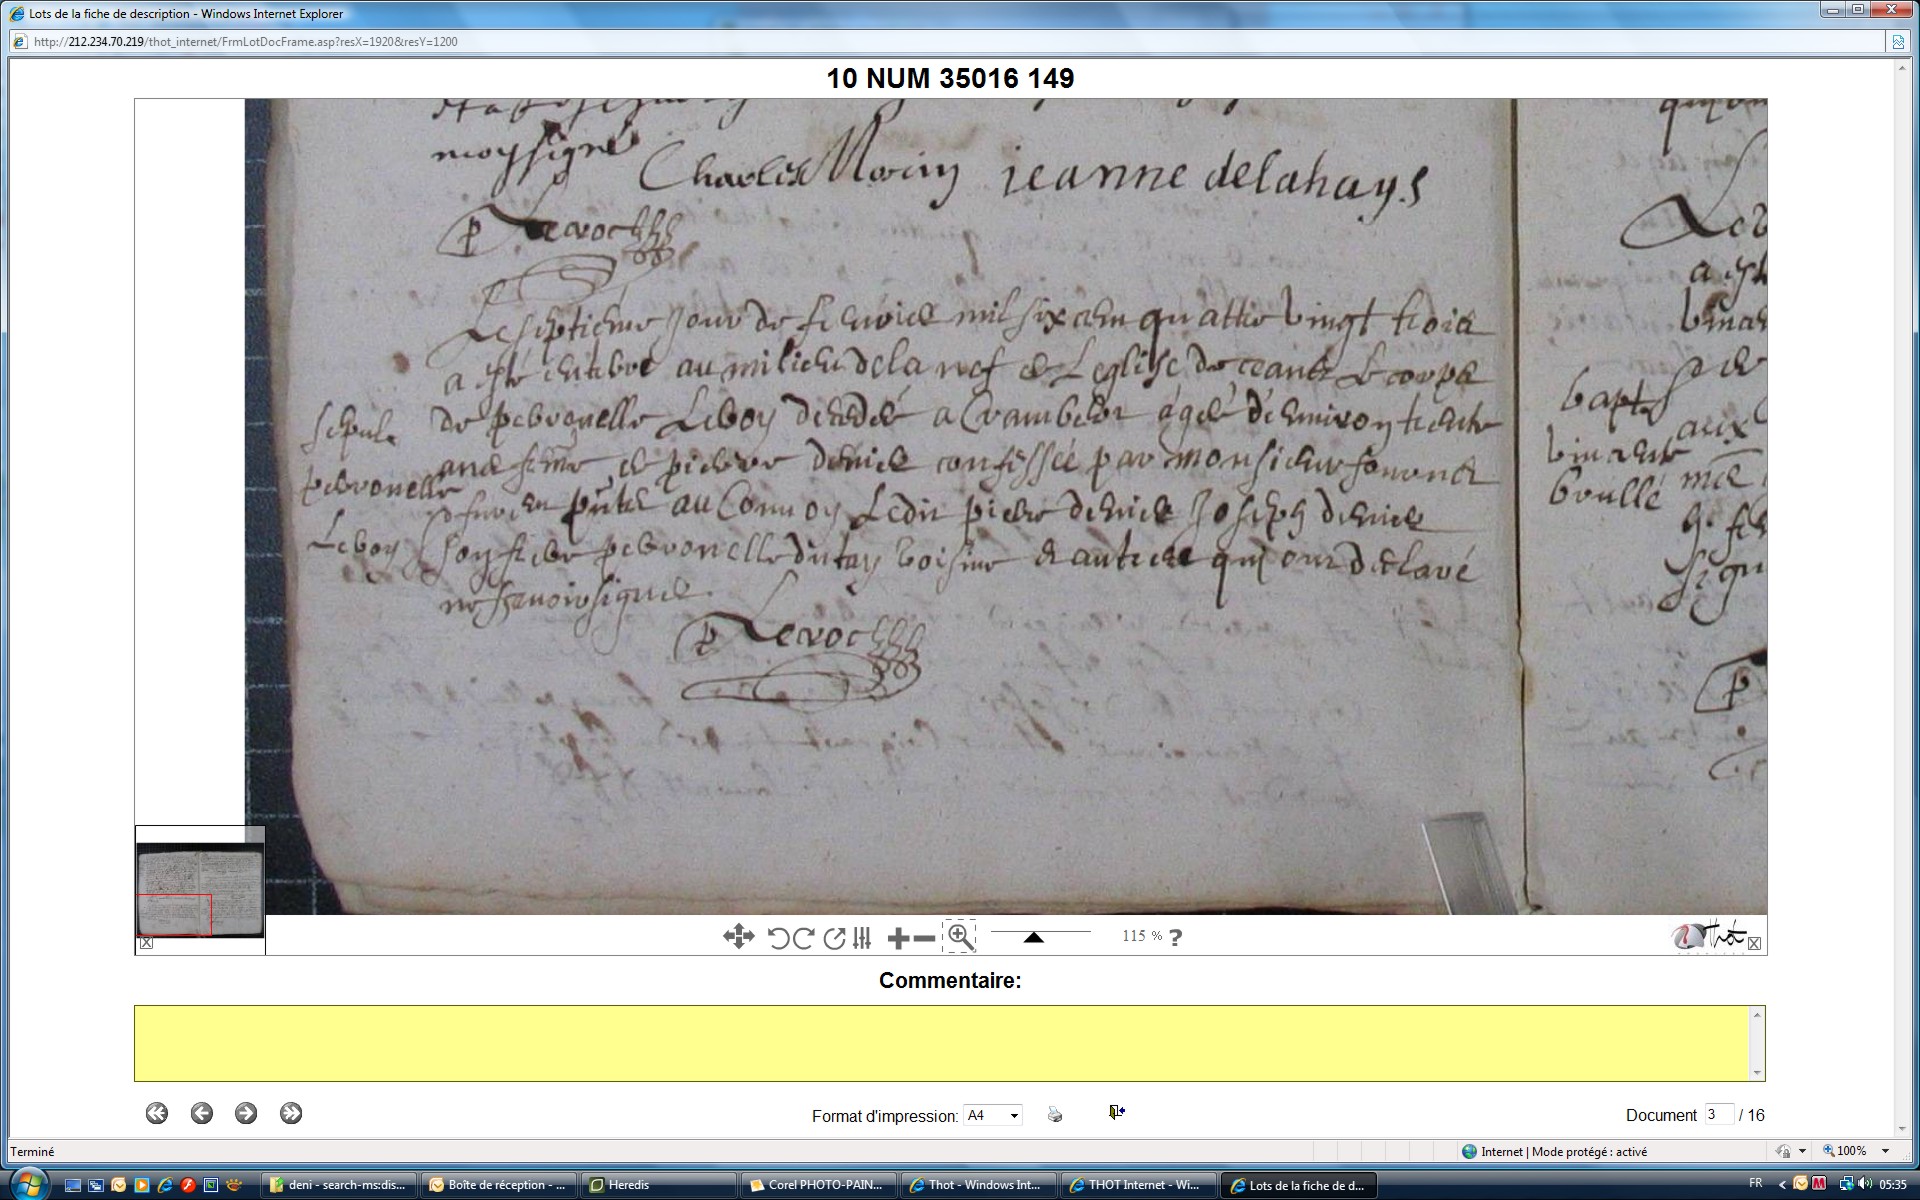 Lots de la fiche de description - Windows Internet Explorer
http://212.234.70.219/thot_internet/FrmLotDocFrame.asp?resX=1920&resY=1200
10 NUM 35016 149
moy signé
Charles Morin jeanne delahays
p Lecroc
Le septieme jour de fevrier mil six cem quattre vingt trois
a esté enterré au milieu de la nef de L eglise de ceans Le corps
de perronelle Leroy decedée a agée d'environ trente
ans femme de pierre denis confessée par monsieur
furen pnts au Convoy Ledit pierre denis Joseph denis
son frere perronelle dutay voisine et autres qui ont declaré
ne scavoir signer.
p Lecroc
sepul.
perronelle
Leroy
bapt
brullé
115 % ?
Thot
Commentaire:
Format d'impression: A4
Document 3 / 16
Terminé
Internet | Mode protégé : activé
100%
deni - search-ms:dis...
Boîte de réception - ...
Heredis
Corel PHOTO-PAIN...
Thot - Windows Int...
THOT Internet - Wi...
Lots de la fiche de d...
FR
05:35